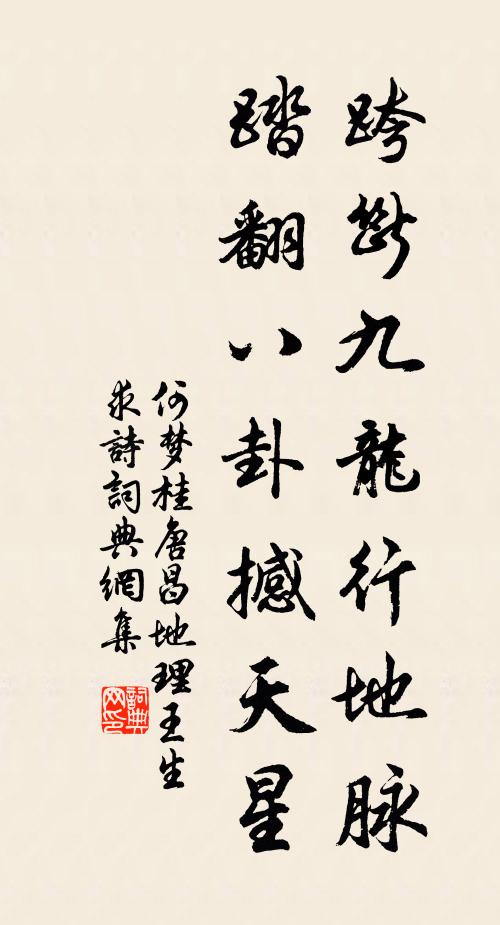 跨斷九龍行地脉
踏翻八卦撼天星
何梦桂唐昌地理王生
求詩詞典網集
詞典
网印